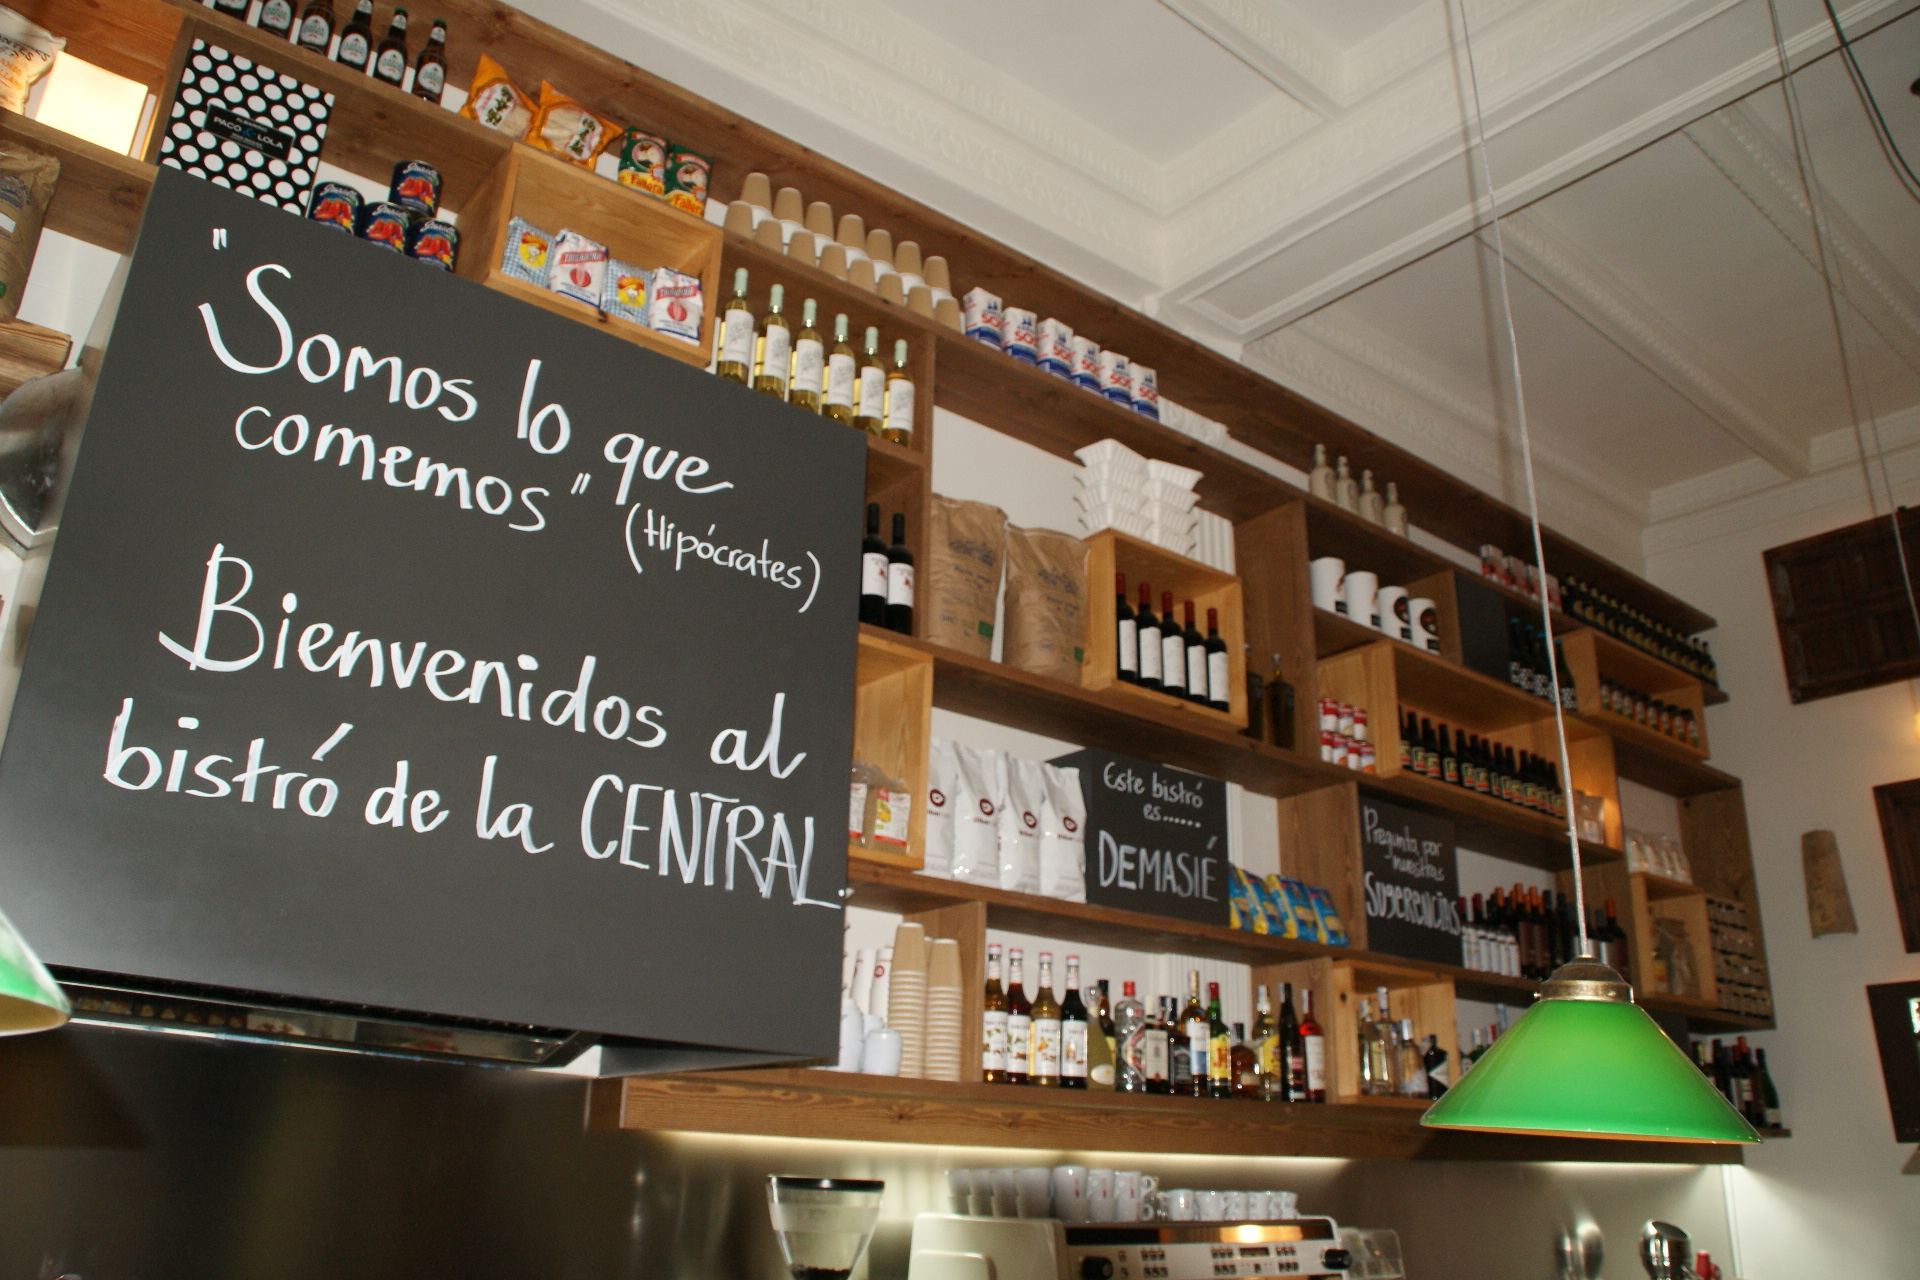 "Somos lo que
comemos"
(Hipócrates)
Bienvenidos al
bistró de la CENTRAL.
PACO & LOLA
Este bistró
es......
DEMASIÉ
Pregunta por
nuestras
SUGERENCIAS